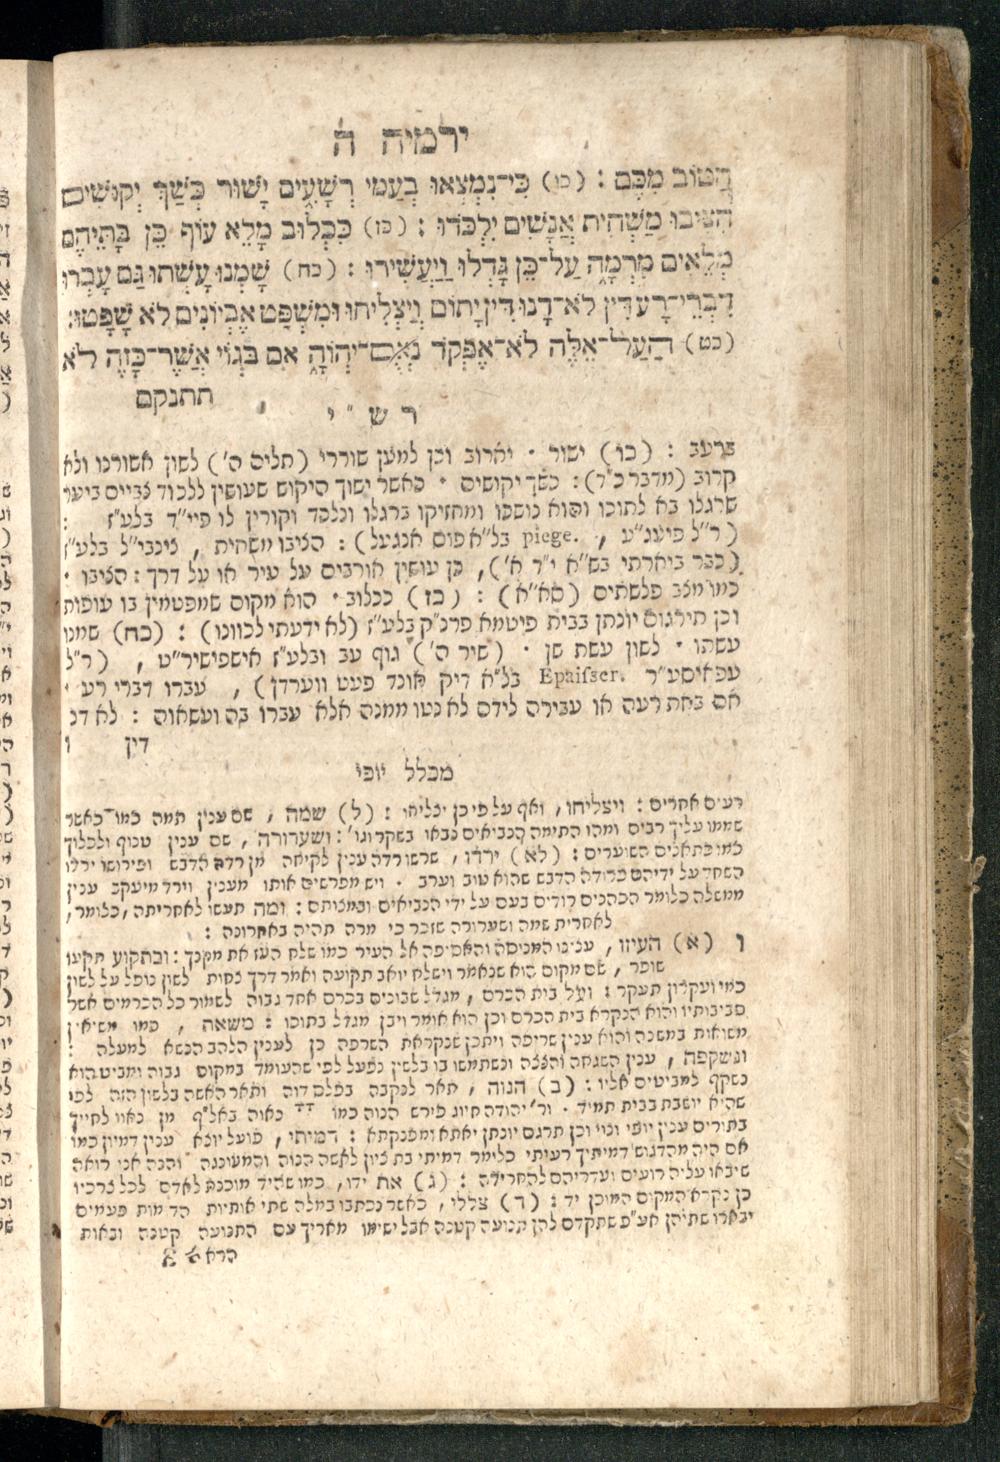 ירמיה ה
הַטּוֹב מִכֶּם : (כו) כִּי־נִמְצְאוּ בְעַמִּי רְשָׁעִים יָשׁוּר כְּשַׁךְ יְקוּשִׁים
הִצִּיבוּ מַשְׁחִית אֲנָשִׁים יִלְכֹּדוּ : (כז) כִּכְלוּב מָלֵא עוֹף כֵּן בָּתֵּיהֶם
מְלֵאִים מִרְמָה עַל־כֵּן גָּדְלוּ וַיַּעֲשִׁירוּ : (כח) שָׁמְנוּ עָשְׁתוּ גַּם עָבְרוּ
דִבְרֵי־רָע דִּין לֹא־דָנוּ דִּין יָתוֹם וְיַצְלִיחוּ וּמִשְׁפַּט אֶבְיוֹנִים לֹא שָׁפָטוּ :
(כט) הַעַל־אֵלֶּה לֹא־אֶפְקֹד נְאֻם־יְהוָֹה אִם בְּגוֹי אֲשֶׁר־כָּזֶה לֹא
תתנקם
ר ש " י
ברעב : (כו) ישור · יארוב וכן למען שוררי (תלים ה') לשון אשורנו ולא
קרוב (מדבר כ"ד) : כשך יקושים · כאשר ישוך היקוש שעושין ללכוד צביים ביער
שרגלו בא לתוכו והוא כושפו ומחזיקו ברגלו ונלכד וקורין לו פיי"ד בלע"ז :
(ר"ל פיעג"ע , piege. בל"א פוס אנגעל) : הציבו משחית , צינבי"ל בלע"ז
(כבר ביארתי בש"א י"ד א') , כן עושין אורבים על עיר או על דרך : הציבו ·
כמו מצב פלשתים (שא"א) : (כז) ככלוב · הוא מקום שמפטמין בו עופות
וכן תירגום יונתן בבית פיטמא פרנ"ק בלע"ז (לא ידעתי לכוונו) : (כח) שמנו
עשתו · לשון עשת שן · (שיר ה') גוף עב ובלע"ז אישפישיר"ט , (ר"ל
עפאיסע"ר Epaiſser. בל"א דיק אונד פעט ווערדן) , עברו דברי רע ·
אם באת רעה או עבירה לידם לא נטו ממנה אלא עברו בה ועשאוה : לא דנ
דין ו
מכלל יופי
רעים אחרים : ויצליחו , ואף על פי כן יצליחו : (ל) שמה , שם ענין תמה כמו כאשר
שממו עליך רבים ומהו התימה הנביאים נבאו בשקר וגו' : ושערורה , שם ענין טנוף ולכלוך
כמו כתאנים השוערים : (לא) ירדו , שרשו רדה ענין לקיחה מן רדה הדבש ופירושו ירדו
השחד על ידיהם כרודה הדבש שהוא טוב וערב . ויש מפרשים אותו מענין וירד מיעקב ענין
ממשלה כלומר הכהנים רודים בעם על ידי הנביאים ובמצותם : ומה תעשו לאחריתה , כלומר ,
לאחרית שמה ושערורה שזכר כי מרה תהיה באחרונה :
ו (א) העיזו , ענינו המניסה והאסיפה אל העיר כמו שלח העז את מקנך : ובתקוע תקעו
שופר , שם מקום הוא שנאמר וישלח יואב תקועה ואמר דרך צחות לשון נופל על לשון
כמו ועקרון תעקר : ועל בית הכרם , מגדל שבונים בכרם אחד גבוה לשמור כל הכרמים אשר
סביבותיו והוא הנקרא בית הכרם וכן הוא אומר ויבן מגדל בתוכו : משאה , כמו משיאין
משואות במשנה והוא ענין שריפה ויתכן שנקראת השרפה כן לענין הלהב הנשא למעלה :
ונשקפה , ענין השגחה והצצה ונשתמשו בו בלשון נפעל לפי שהעומד במקום גבוה ומביט הוא
נשקף למביטים אליו : (ב) הנוה , תאר לנקבה בפלס דוה ותאר האשה בלשון הזה לפי
שהיא יושבת בבית תמיד . ור' יהודה חיוג פירש הנוה כמו נאוה באל"ף מן נאוו לחייך
בתורים ענין יופי ונוי וכן תרגם יונתן יאתא ומפנקתא : דמיתי , פועל יוצא ענין דמיון כמו
אם היה מהדגוש דמיתיך רעיתי כלומר דמיתי בת ציון לאשה הנוה והמעונגה והנה אני רואה
שיבאו עליה רועים ועדריהם להחרידה : (ג) את ידו , כמו שהיד מוכנת לאדם לכל צרכיו
כן נקרא המקום המוכן יד : (ד) צללי , כאשר נכתבו במלה שתי אותיות הדומות פעמים
יבארו שתיהן אע"פ שתקדם להן תנועה קטנה אבל ישימו מאריך עם התנועה קטנה ובאות
הרא